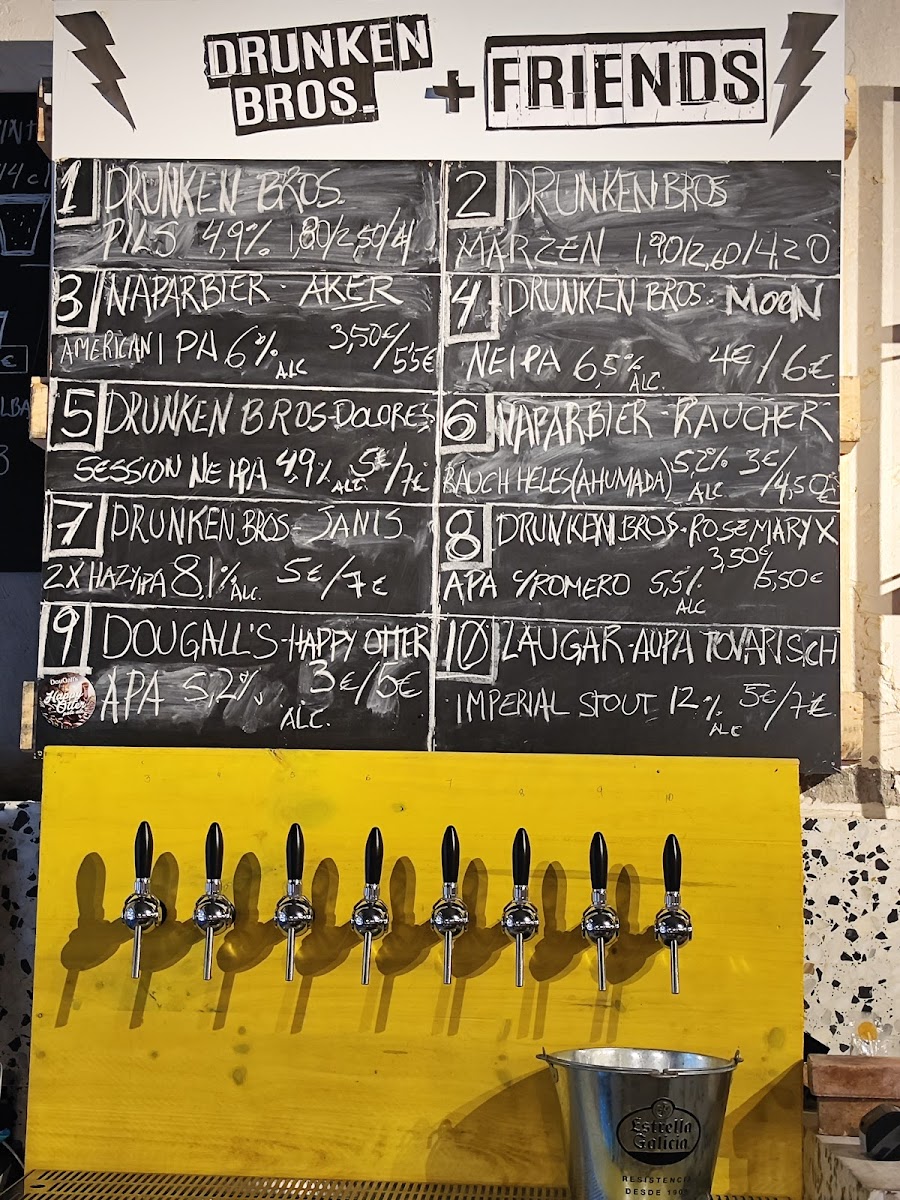 DRUNKEN
BROS.
+ FRIENDS
1 DRUNKEN BROS.
PILS 4,9% 1,80/2,50/4
2 DRUNKEN BROS
MÄRZEN 1,90/2,60/4,20
3 NAPARBIER - AKER
AMERICAN IPA 6% ALC 3,50€/5,5€
4 DRUNKEN BROS. MOON
NEIPA 6,5% ALC. 4€/6€
5 DRUNKEN BROS-DOLORES
SESSION NEIPA 4,9% ALC. 5€/7€
6 NAPARBIER - RAUCHER
RAUCH HELES (AHUMADA) 5,2% ALC 3€/4,50€
7 DRUNKEN BROS - JANIS
2X HAZY IPA 8,1% ALC. 5€/7€
8 DRUNKEN BROS - ROSEMARY X
APA C/ROMERO 5,5% ALC 3,50€/5,50€
9 DOUGALL'S - HAPPY OTTER
APA 5,2% ALC. 3€/5€
DouGall's
Happy
Otter
10 LAUGAR - AUPA TOVARISCH
IMPERIAL STOUT 12% ALC 5€/7€
3
6
7
8
9
10
Estrella
Galicia
RESISTENCIA
DESDE 1906